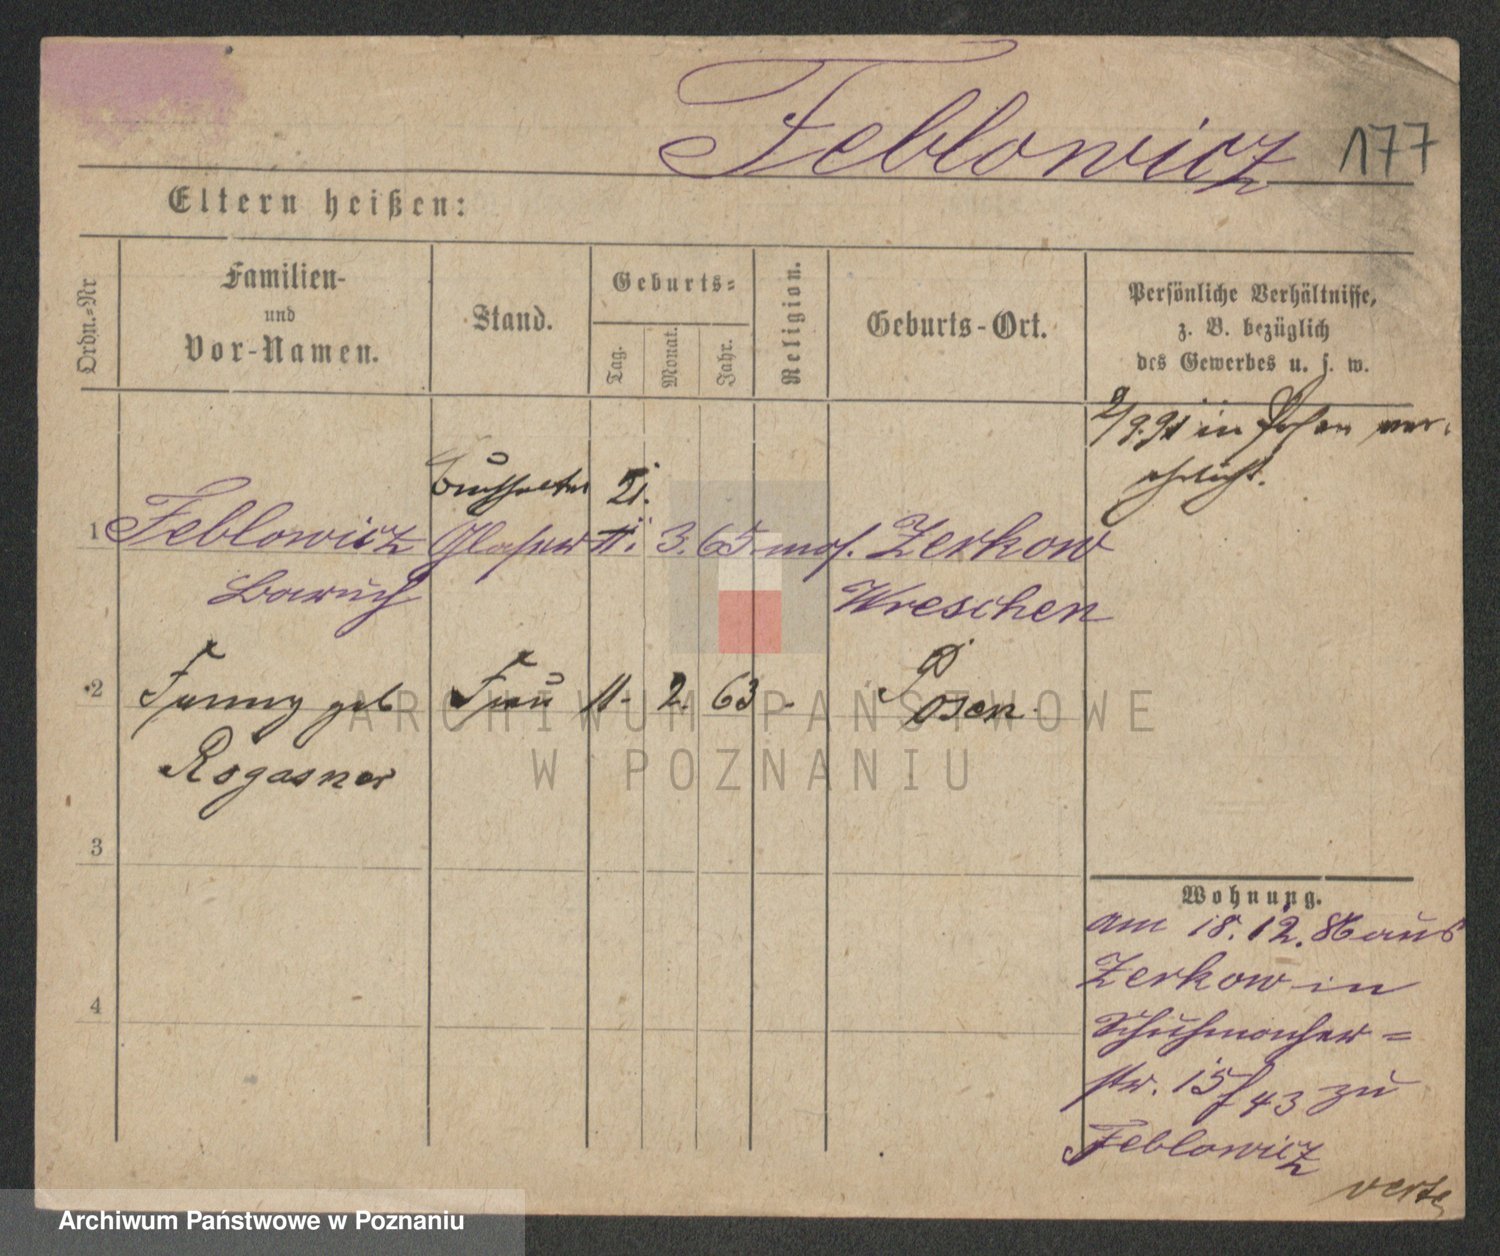 Feblowicz 177
Eltern heißen:
Ordn.=Nr
Familien-
und
Vor-Namen.
Stand.
Geburts=
Tag.
Monat.
Jahr.
Religion.
Geburts-Ort.
Persönliche Verhältnisse,
z. B. bezüglich
des Gewerbes u. s. w.
2/9.91 in Posen ver-
ehelicht.
Buchhalter 21.
1 Feblowicz Glaser 11. 3. 65 mos. Zerkow
Baruch Wreschen
2 Fanny geb Frau 11. 2. 63 - Posen
Rogasner
3
4
Wohnung.
am 18.12.86 aus
Zerkow in
Schuhmacher=
str. 15 f 43 zu
Feblowicz
verte
ARCHIWUM PAŃSTWOWE
W POZNANIU
Archiwum Państwowe w Poznaniu